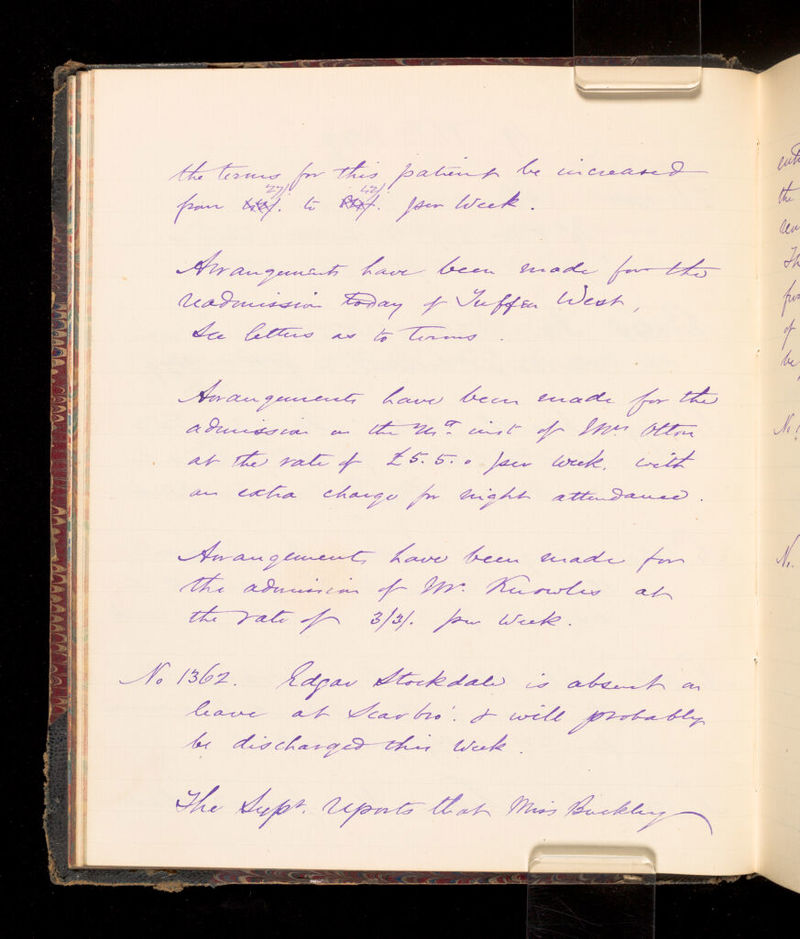 the terms for this patient be increased
from 27/. to 42/. per Week.
Arrangements have been made for the
readmission today of Tuffen West,
See letters as to terms.
Arrangements have been made for the
admission on the inst of Mrs Otton
at the rate of £5.5.0 per week. with
an extra charge for night attendance.
Arrangements have been made for
the admission of Mr. Knowles at
the rate of 3/3/. per week.
No 1362. Edgar Stockdale is absent on
leave at Scarbro'. & will probably
be discharged this week.
The Supt. reports that Miss Buckley